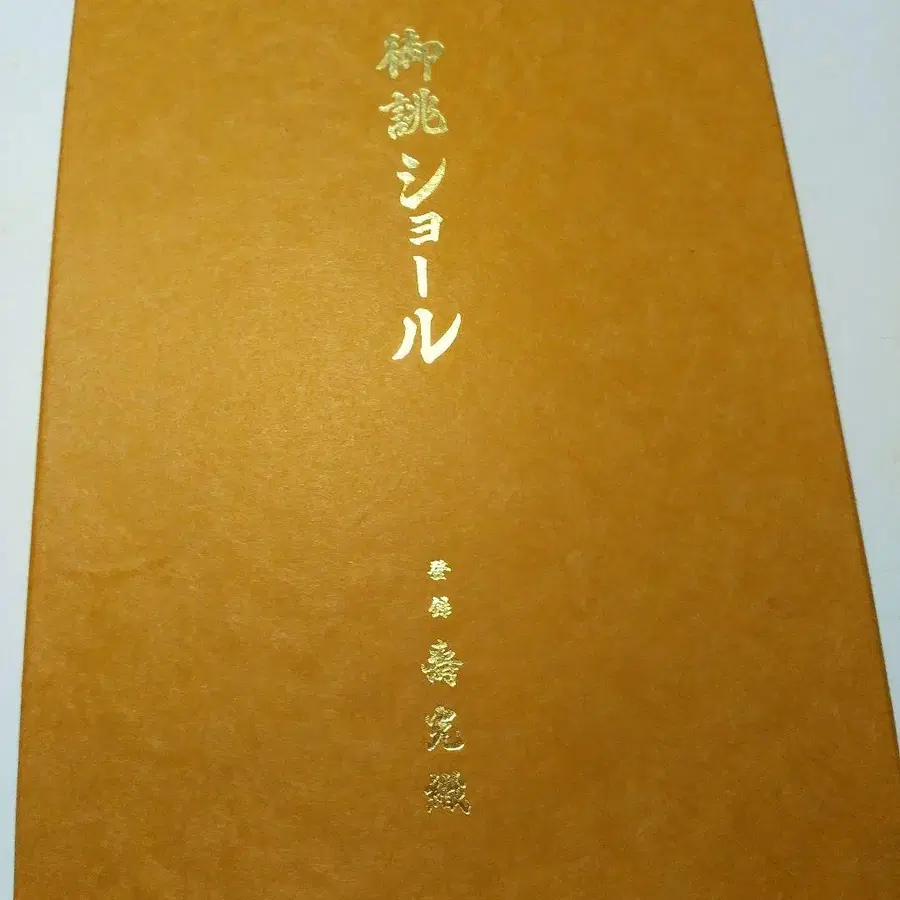 御誂ショール
登録 壽光織